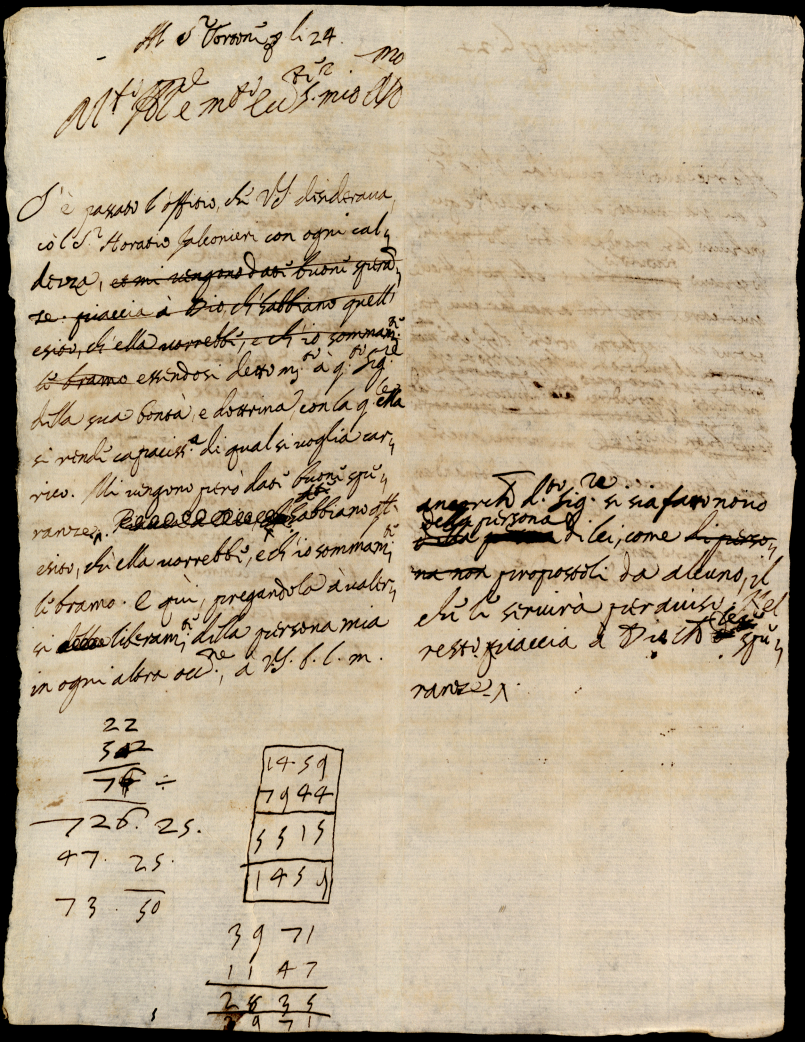 Al S.r
li 24.
mio
S'è passato l'offitio, che VS. desideraua,
cō l S.r Horatio Falconieri con ogni cal=
dezza, et mi uengono dati buone speran=
ze. piaccia à Dio, ch'habbiano quell'
esito, ch'ella uorrebbe, e ch'io sommam.te
le bramo essendosi detto m.to à q.to Sig.re
della sua bontà, e dottrina, con la q.le ella
si rende capaciss.a di qual si uoglia car=
rico. Mi uengono però date buone spe=
ranze,
habbiano
esito, che ella uorrebbe, e ch'io sommam.te
le bramo. E quì, pregandola à ualer=
si liberam.te della persona mia
in ogni altra occ.ne, à VS. b. l. m.
ancorche d.to Sig.re si sia fatto nouo
della persona
di lei, come di perso=
na non propostoli da alcuno, il
che le seruirà per auiso. Nel
resto piaccia à Dio che le spe=
ranze
22
76
726. 25.
47. 25.
73. 50
1459
7944
5515
1459
3971
1147
2835
3971